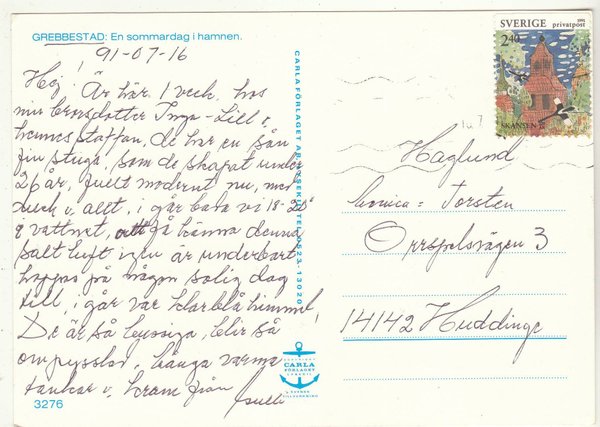 GREBBESTAD: En sommardag i hamnen.
91-07-16
Hej!
Är här 1 veck. hos
min brorsdotter Inga-Lill o
hennes staffan, de har en sån
fin stuga, som de skapat under
26 år, fullt modernt nu, med
dusch o. allt, i går bara vi 18-20°
i vattnet, att få känna denna
salt luft igen är underbart
hoppas på någon solig dag
till, i går var klarblå himmel,
De är så hyssiga, blir så
ompysslad, många varma
tankar o. kram från
3276
CARLA FÖRLAGET AB, LYSEKIL TEL 0523-13020
CARLA
FÖRLAGET
LYSEKIL
SVENSK
TILLVERKNING
SVERIGE
1991
privatpost
2.40
SKANSEN
Haglund
Torsten
Orrspelsvägen 3
14142 Huddinge